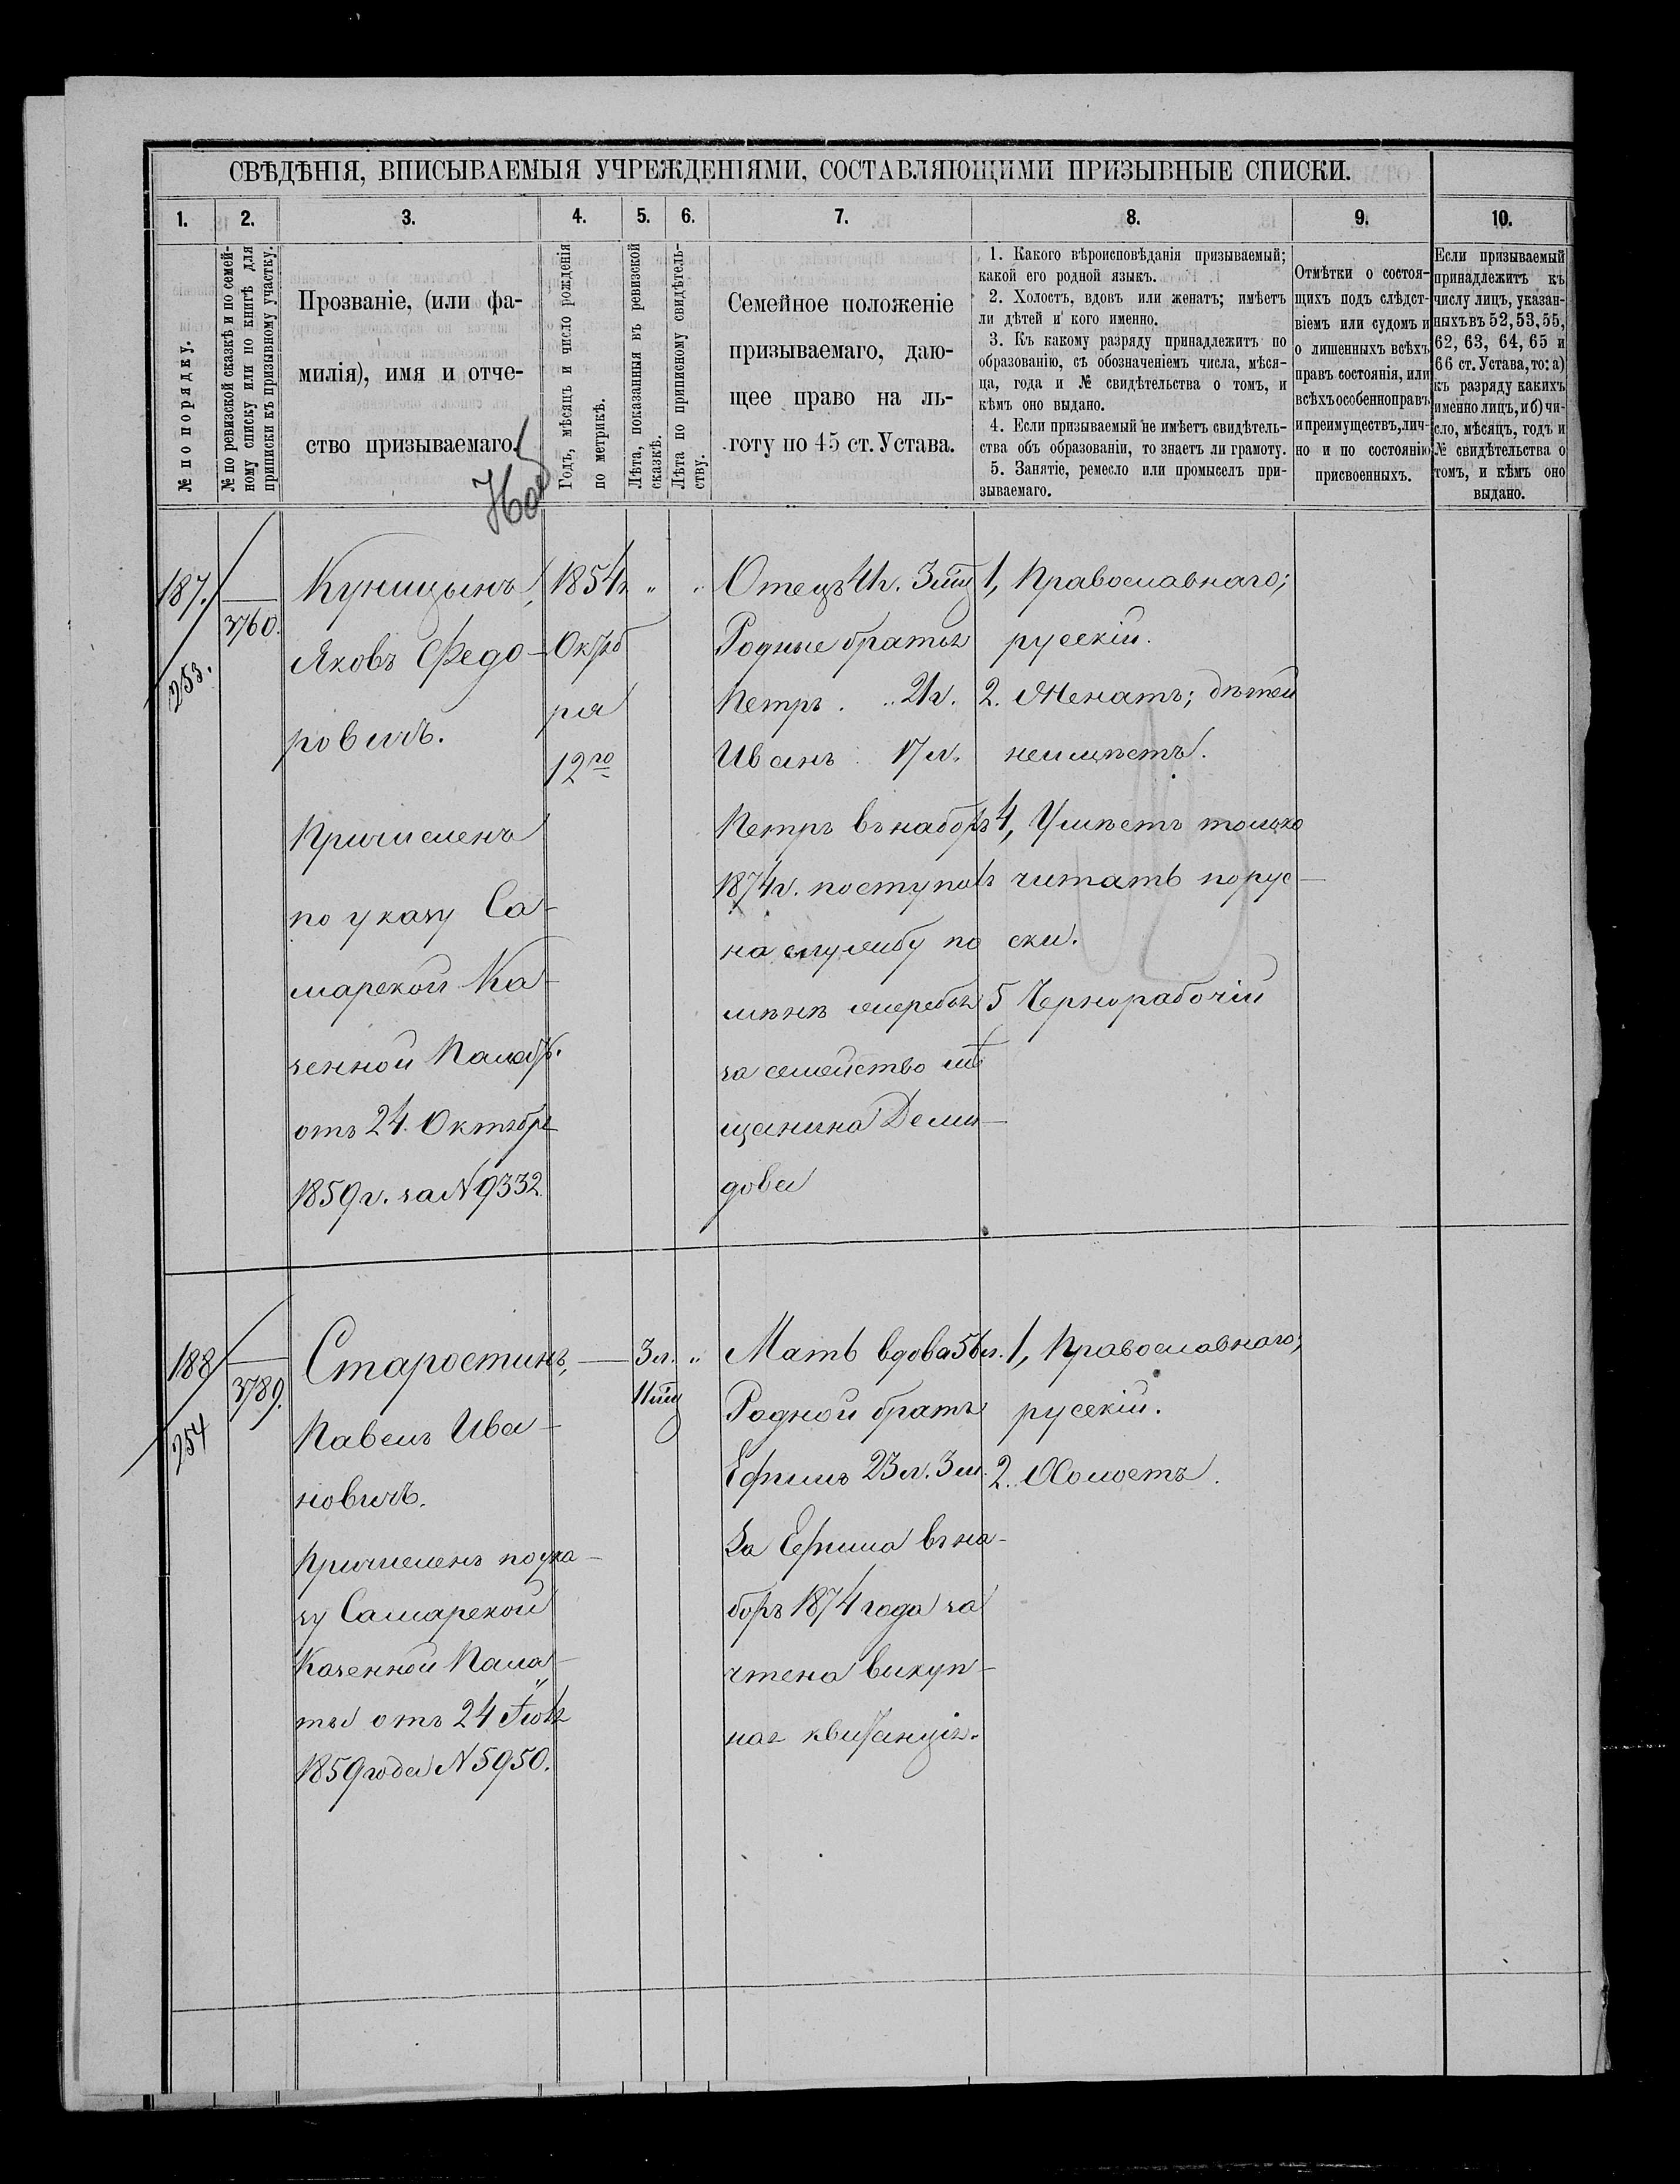 СВѢДѢНІЯ, ВПИСЫВАЕМЫЯ УЧРЕЖДЕНІЯМИ, СОСТАВЛЯЮЩИМИ ПРИЗЫВНЫЕ СПИСКИ.
1. 2. 3. 4. 5. 6. 7. 8. 9. 10.
№ по порядку.
№ по ревизской сказкѣ и по семей-
ному списку или по книгѣ для
приписки къ призывному участку.
Прозваніе, (или фа-
милія), имя и отче-
ство призываемаго.
Годъ, мѣсяцъ и число рожденія
по метрикѣ.
Лѣта, показанныя въ ревизской
сказкѣ.
Лѣта по приписному свидѣтель-
ству.
Семейное положеніе
призываемаго, даю-
щее право на ль-
готу по 45 ст. Устава.
1. Какого вѣроисповѣданія призываемый;
какой его родной языкъ.
2. Холостъ, вдовъ или женатъ; имѣетъ
ли дѣтей и кого именно.
3. Къ какому разряду принадлежитъ по
образованію, съ обозначеніемъ числа, мѣся-
ца, года и № свидѣтельства о томъ, и
кѣмъ оно выдано.
4. Если призываемый не имѣетъ свидѣтель-
ства объ образованіи, то знаетъ ли грамоту.
5. Занятіе, ремесло или промыселъ при-
зываемаго.
Отмѣтки о состоя-
щихъ подъ слѣдст-
віемъ или судомъ и
о лишенныхъ всѣхъ
правъ состоянія, или
всѣхъ особенно правъ
и преимуществъ, лич-
но и по состоянію
присвоенныхъ.
Если призываемый
принадлежитъ къ
числу лицъ, указан-
ныхъ въ 52, 53, 55,
62, 63, 64, 65 и
66 ст. Устава, то: а)
къ разряду какихъ
именно лицъ, и б) чи-
сло, мѣсяцъ, годъ и
№ свидѣтельства о
томъ, и кѣмъ оно
выдано.
187.
253.
3760.
Куницынъ,
Яковъ Федо-
ровичъ.
Причисленъ
по указу Са-
марской Ка-
зенной Палаты.
отъ 24 Октября
1859 г. за N 9332.
1854 г.
Октяб
ря
12го
"
"
Отецъ
Родные братья
Петръ . .. 21 г.
Иванъ 17 л.
Петръ въ наборъ
1874 г. поступилъ
на службу по
мѣнѣ жеребья
за семейство мѣ
щанина Деми-
дова
1, Православнаго;
русскій.
2. Женатъ; дѣтей
неимѣетъ.
4, Умѣетъ только
читать порус-
ски.
5 Чернорабочій
188
254
3789.
Старостинъ,
Павелъ Ива-
новичъ.
Причисленъ по ука-
зу Самарской
Казенной Пала-
ты отъ 24 Іюля
1859 года N 5950.
3 л.
11 мѣц
"
Мать вдова 56 л.
Родной братъ
Ефимъ 23 л. 3 м.
За Ефима въ на-
боръ 1874 года за
чтена выкуп-
ная квитанція.
1, Православнаго;
русскій.
2. Холостъ.